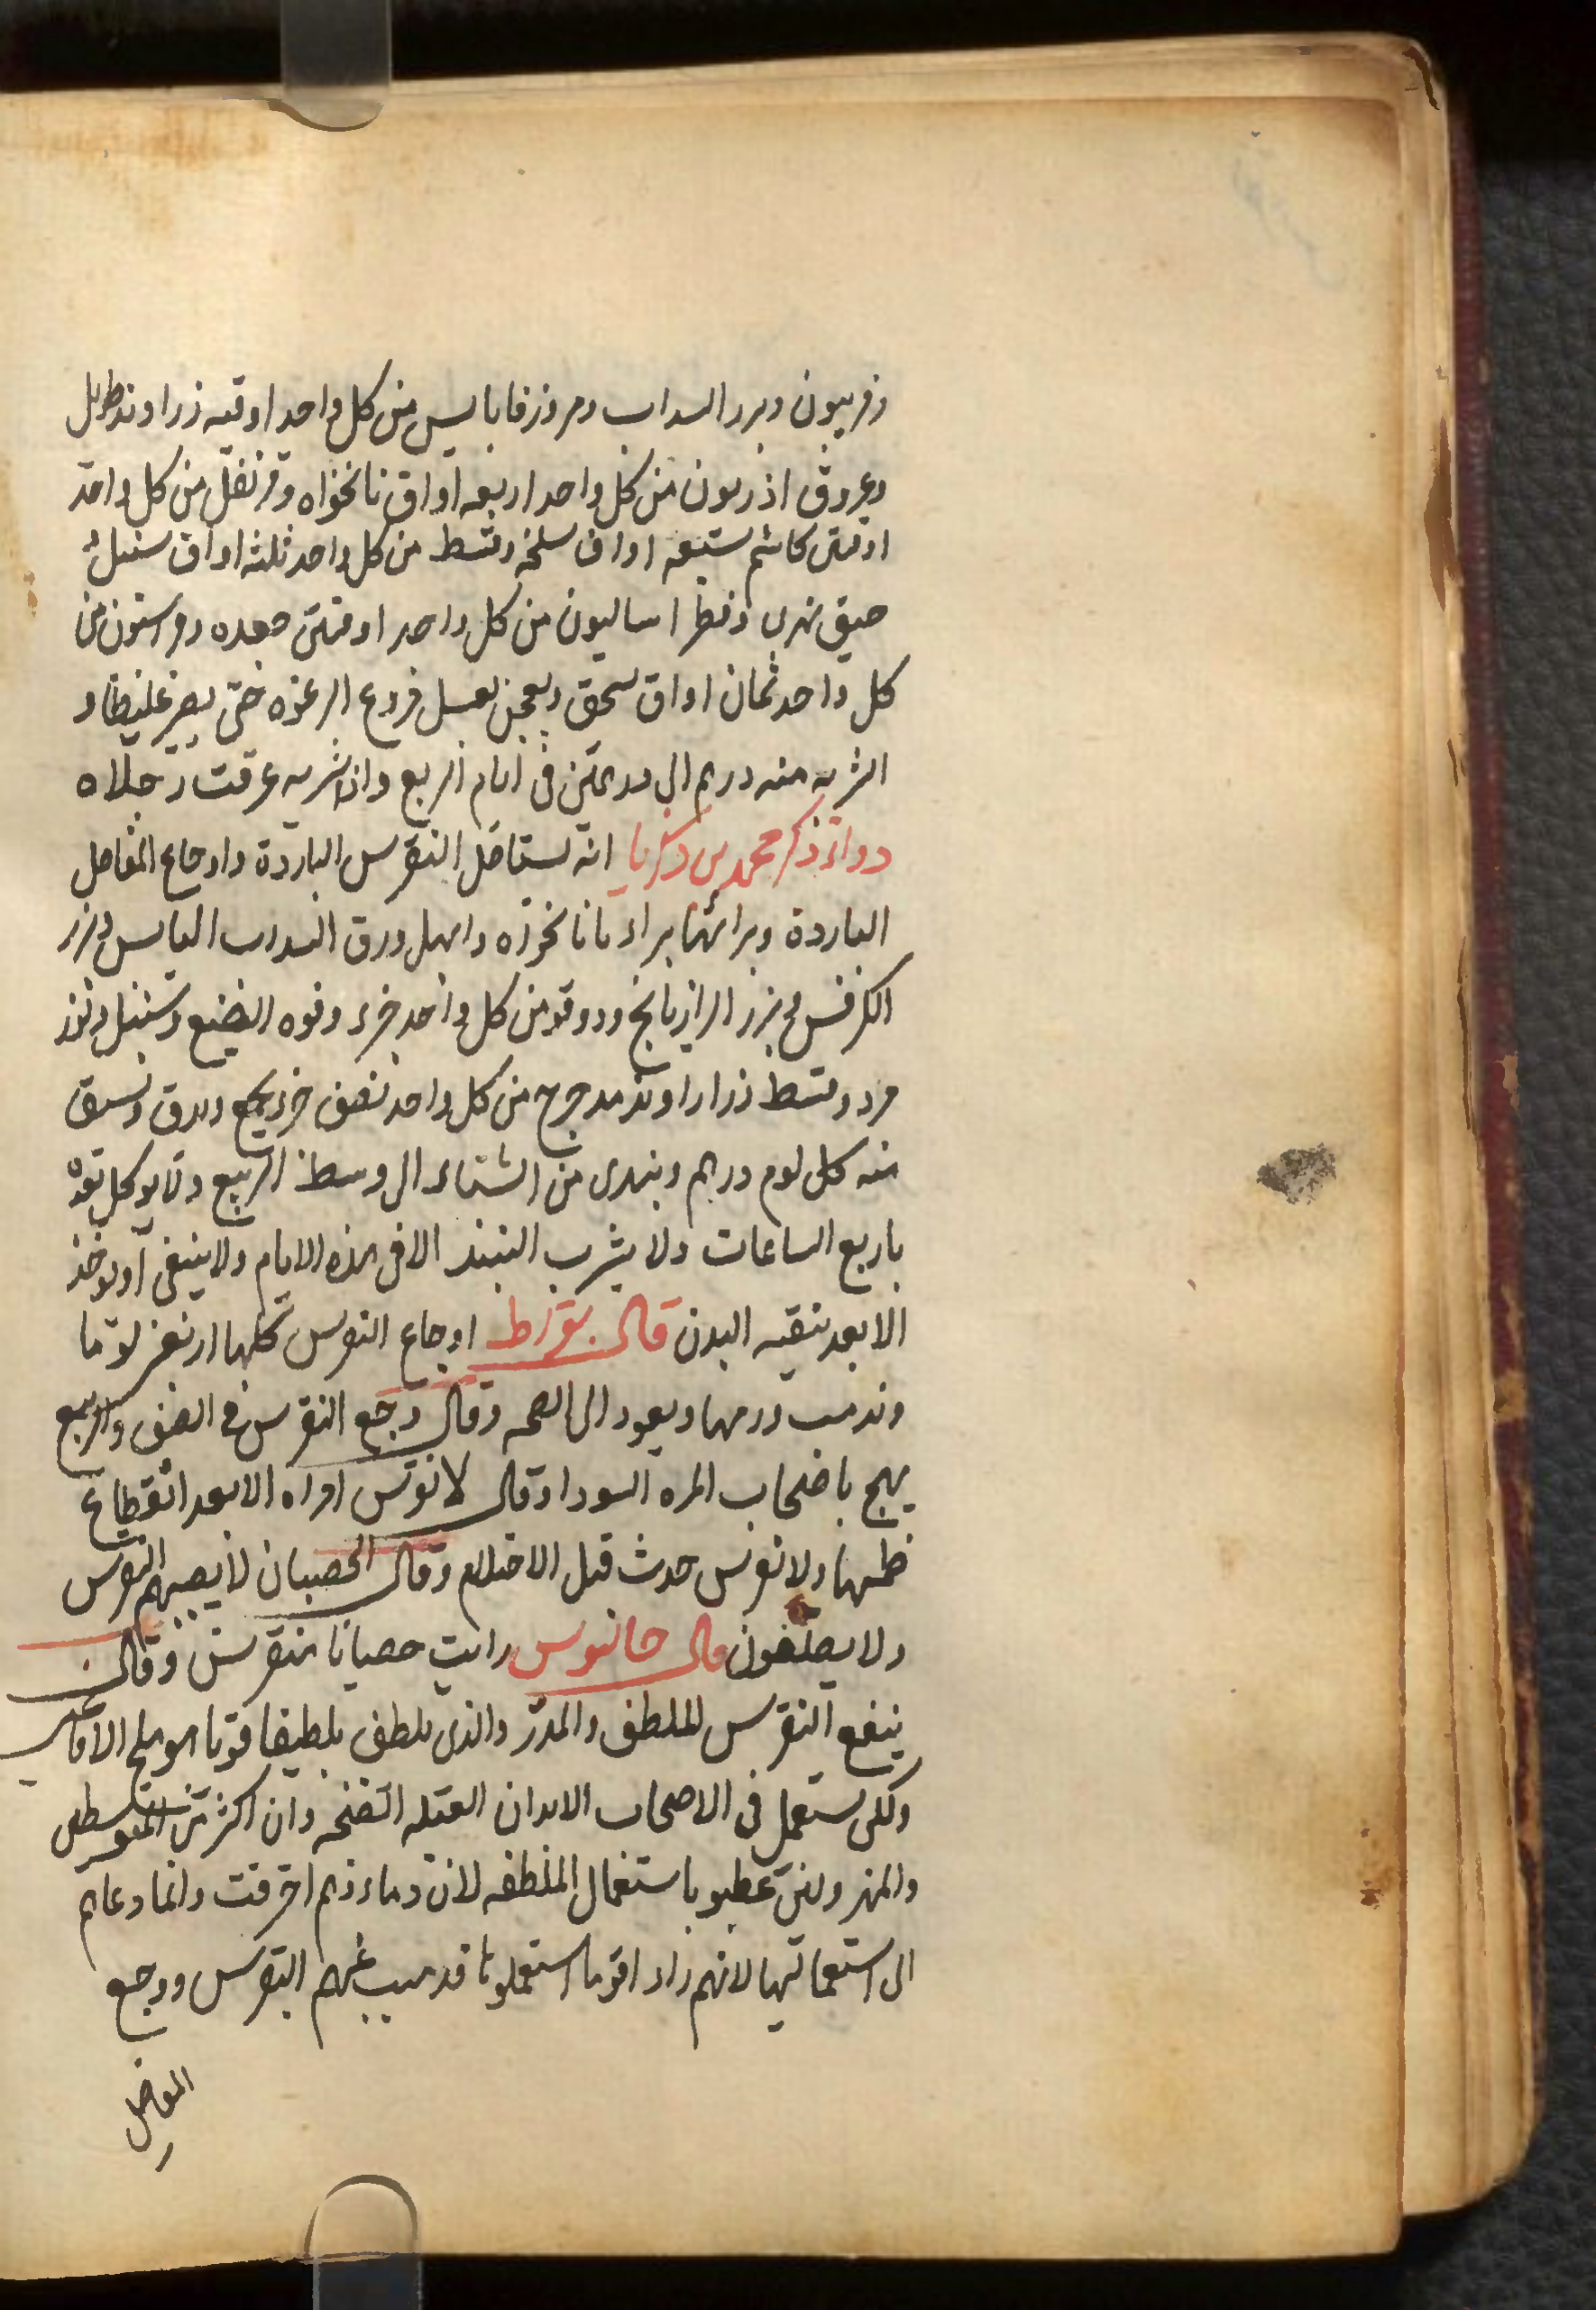 وفربيون وبزر السداب ومر وزوفا يابس من كل واحد اوقيه زراوند طويل
وعروق اذريون من كل واحد اربعه اواق نانخواه وقرنفل من كل واحد
اوقيتين كاشم ستبعه اواق سلخه وقسط من كل واحد ثلثه اواق سنبل
حبق نهرى وفطراساليون من كل واحد اوقيتين جعده من
كل واحد ثمان اواق يسحق ويعجن بعسل منزوع الرغوه حتى يصير غليظا و
الشربه منه درهم الى درهمين فى ايام الربيع واذا شربه عرقت رجلاه
دواء ذكر محمد بن زكريا انه يستاصل النقرس الباردة واوجاع المفاصل
الباردة نانخوزه وابهل ورق السداب اليابس وبزر
الكرفس وبزر الرازيانج ودوقو من كل واحد جزء وفوه الصبغ وسنبل
مر وقسط زراراوند مدحرج من كل واحد نصف جزء يجمع ويدق ويسقى
منه كل يوم درهم ويبتدى من الشتاء الى وسط الربيع ولا يوكل بعده
باربع الساعات ولا يشرب النبيذ الا فى هذه الايام ولا ينبغى ان يوخذ
الا بعد تنقيه البدن قال بقراط اوجاع النقرس كلها اربعين يوما
ويذهب ورمها ويعود الى الصحه وقال وجع النقرس فى الصيف والربيع
يهيج باصحاب المره السودا وقال لا نقرس امراه الا بعد انقطاع
طمثها ولا نقرس حدث قبل الاحتلام وقال الخصيان لا يصيبهم النقرس
ولا يصلعون قال جالنوس رايت خصيانا منقرسين وقال
ينفع النقرس الملطف والمدر والذى يلطف تلطيفا قويا هو ملح الافاعى
ولكن يستعمل فى الاصحاب الابدان وان اكثر من المتوسطين
باستعمال الملطفه لان دماءهم احرقت وانما دعاهم
الى استعمالها لانهم راوا قوما استعملوها فذهب عنهم النقرس ووجع
المفاصل